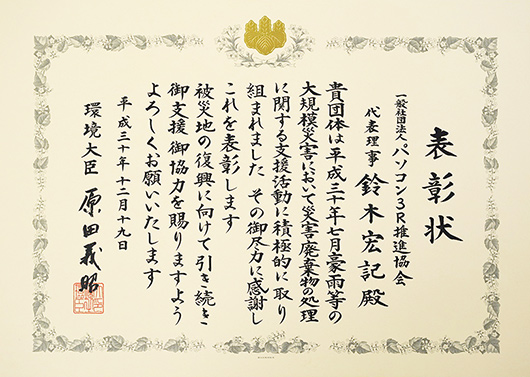 表彰状
一般社団法人パソコン3R推進協会
代表理事 鈴木宏記殿
貴団体は平成三十年七月豪雨等の
大規模災害において災害廃棄物の処理
に関する支援活動に積極的に取り
組まれました その御尽力に感謝し
これを表彰します
被災地の復興に向けて引き続き
御支援御協力を賜りますよう
よろしくお願いいたします
平成三十年十二月十九日
環境大臣 原田義昭